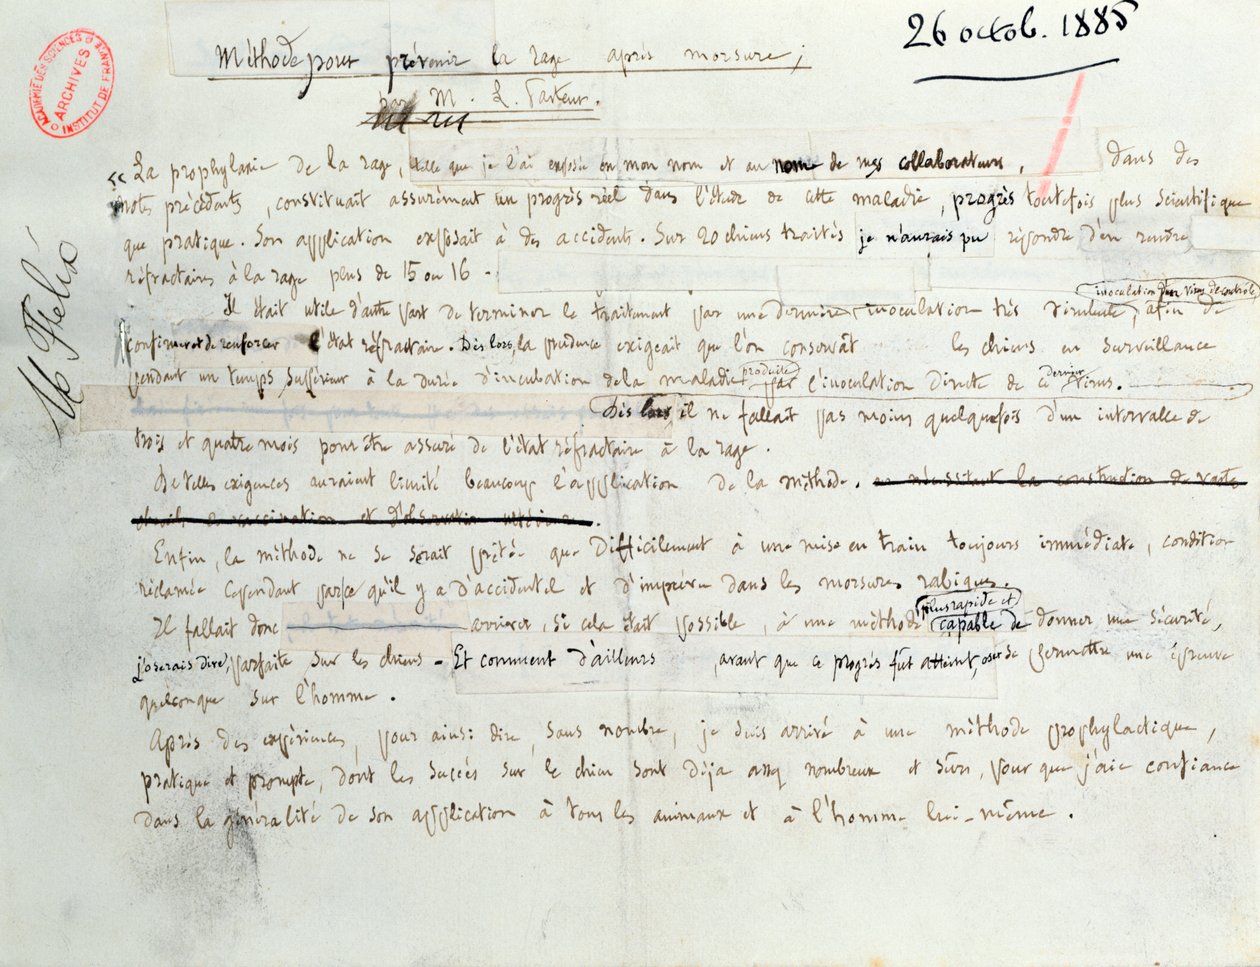 26 octob. 1885
ACADÉMIE DES SCIENCES
ARCHIVES
INSTITUT DE FRANCE
Méthode pour prévenir la rage après morsure ;
par M. L. Pasteur.
« La prophylaxie de la rage, telle que je l'ai exposée en mon nom et au nom de mes collaborateurs, dans des
notes précédentes, constituait assurément un progrès réel dans l'étude de cette maladie, progrès toutefois plus scientifique
que pratique. Son application exposait à des accidents. Sur 20 chiens traités je n'aurais pu répondre d'en rendre
réfractaires à la rage plus de 15 ou 16 -
inoculation d'un virus de contrôle
Il était utile d'autre part de terminer le traitement par une dernière inoculation très virulente, afin de
confirmer et de renforcer l'état réfractaire. Dès lors, la prudence exigeait que l'on conservât les chiens en surveillance
pendant un temps supérieur à la durée d'incubation de la maladie produite par l'inoculation directe de ce dernier virus.
Dès lors il ne fallait pas moins quelquefois d'un intervalle de
trois et quatre mois pour être assuré de l'état réfractaire à la rage.
De telles exigences auraient limité beaucoup l'application de la méthode. en nécessitant la construction de vastes
chenils de vaccination et d'observation ultérieure.
Enfin, la méthode ne se serait prêtée que difficilement à une mise en train toujours immédiate, condition
réclamée cependant par ce qu'il y a d'accidentel et d'imprévu dans les morsures rabiques.
Il fallait donc arriver, si cela était possible, à une méthode plus rapide et capable de donner une sécurité,
j'oserais dire, parfaite sur les chiens - Et comment d'ailleurs, avant que ce progrès fût atteint, oser se permettre une épreuve
quelconque sur l'homme.
Après des expériences, pour ainsi dire, sans nombre, je suis arrivé à une méthode prophylactique,
pratique et prompte, dont les succès sur le chien sont déjà assez nombreux et sûrs, pour que j'aie confiance
dans la généralité de son application à tous les animaux et à l'homme lui-même.